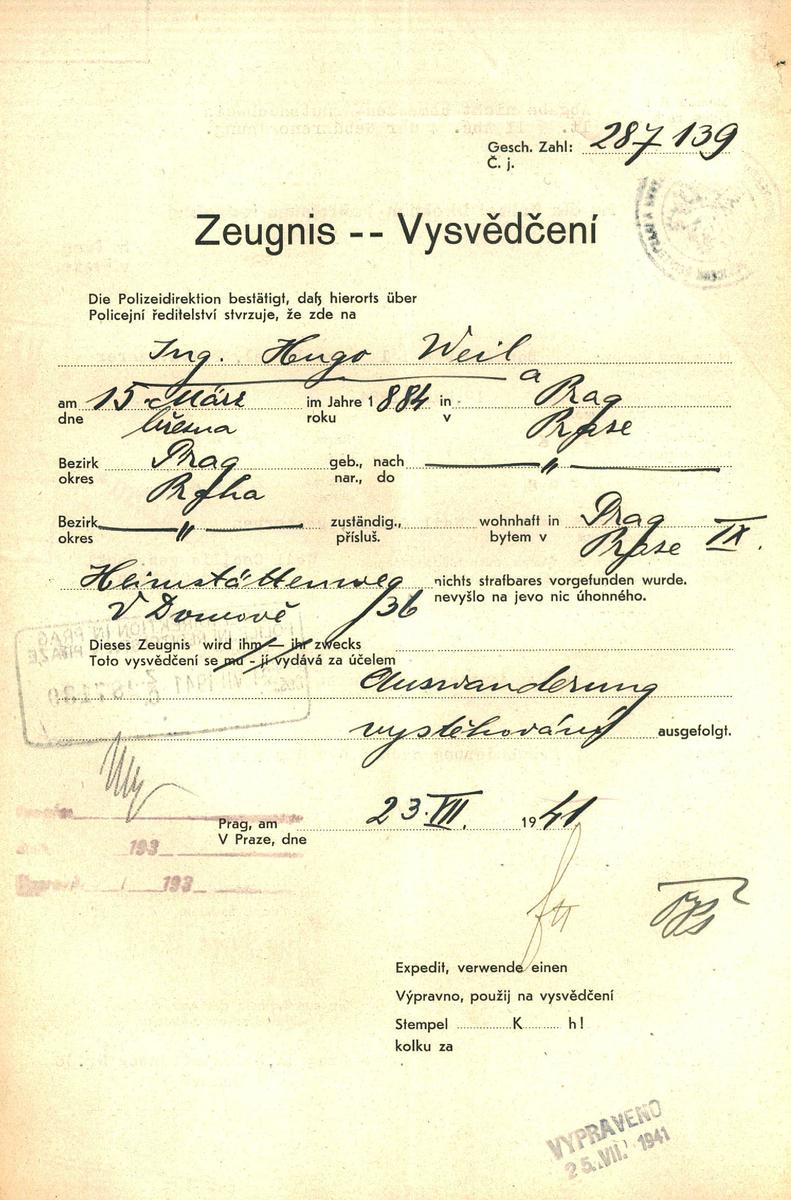 Gesch. Zahl: 287 139
Č. j.
Zeugnis -- Vysvědčení
Die Polizeidirektion bestätigt, daß hierorts über
Policejní ředitelství stvrzuje, že zde na
Ing. Hugo Weil
am 15. März im Jahre 1 884 in Prag
dne března roku v Praze
Bezirk Prag geb., nach — " —
okres Praha nar., do
Bezirk — " — zuständig., wohnhaft in Prag
okres přísluš. bytem v Praze IX.
Heimstättenweg nichts strafbares vorgefunden wurde.
V Domově /36 nevyšlo na jevo nic úhonného.
Dieses Zeugnis wird ihm — ihr zwecks
Toto vysvědčení se mu - jí vydává za účelem
Auswanderung
vystěhování ausgefolgt.
Prag, am 23. VII. 19 41
V Praze, dne
193
193
Expedit, verwende einen
Výpravno, použij na vysvědčení
Stempel K h!
kolku za
VYPRAVENO
25. VII. 1941